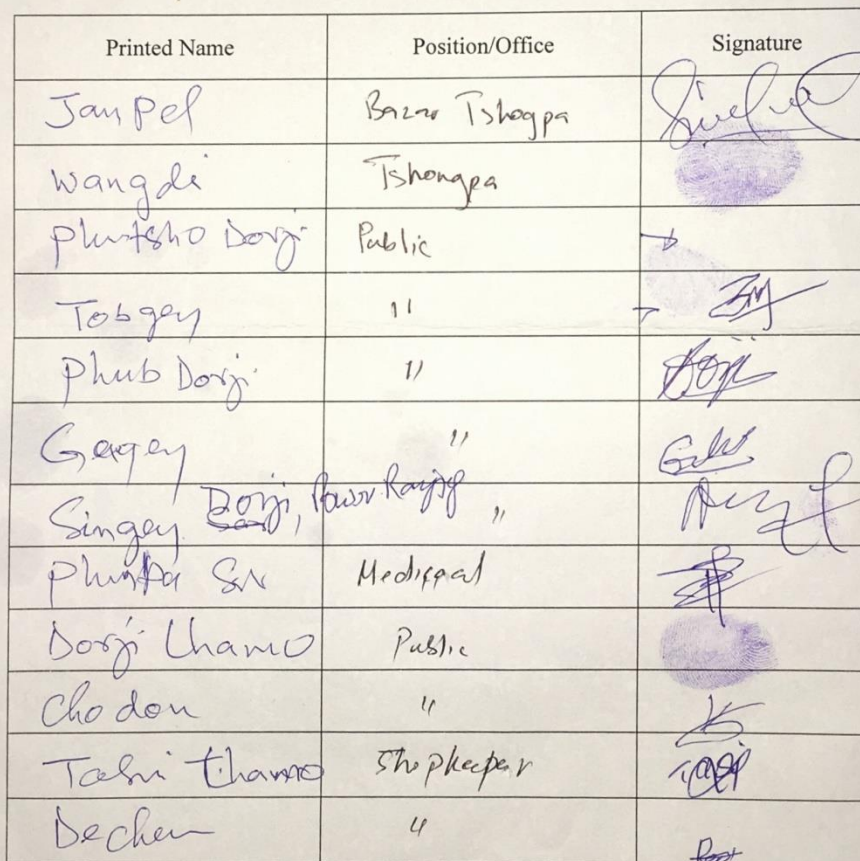 Printed Name Position/Office Signature
Janpel Bazar Tshogpa
Wangdi Tshongpa
Phuntsho Dorji Public
Tobgey "
Phub Dorji "
Gagey "
Singey Dorji, "
Medical
Dorji Lhamo Public
Chodon "
Tashi Lhamo Shopkeeper
Dechen "